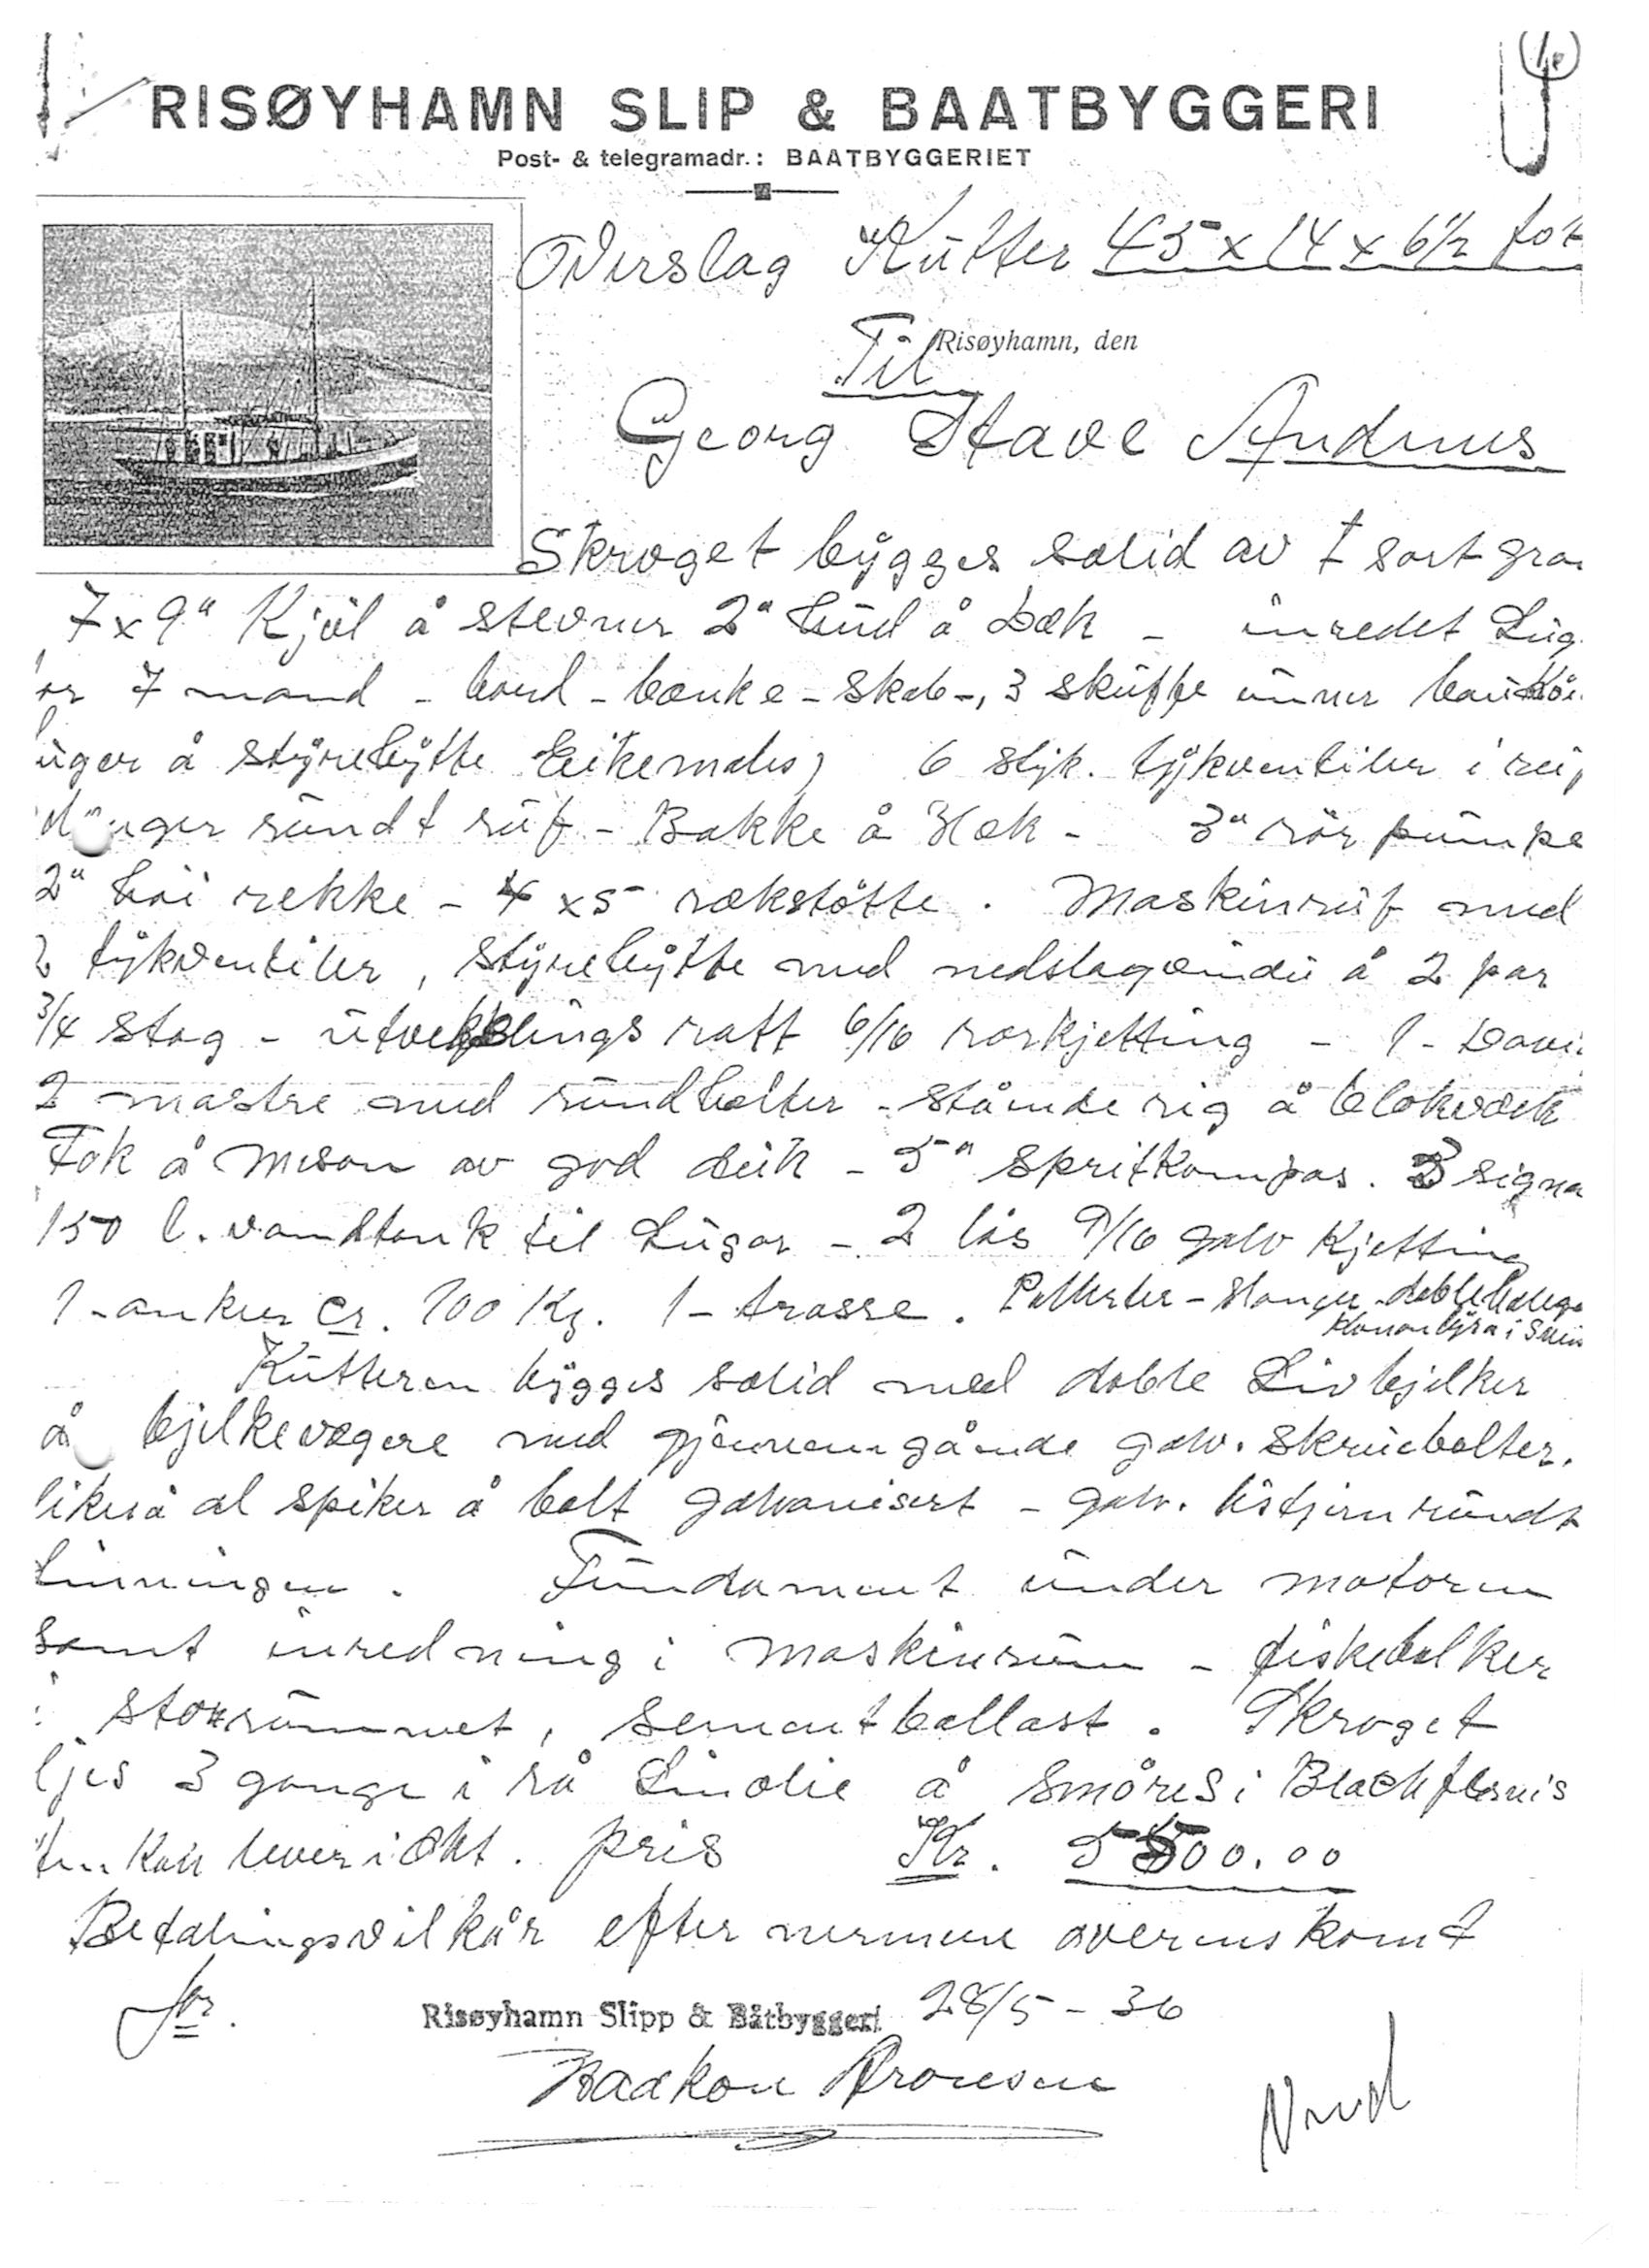 RISØYHAMN SLIP & BAATBYGGERI
Post- & telegramadr.: BAATBYGGERIET
Overslag Kutter 45 x 14 x 6½ fot
Risøyhamn, den
Til
Georg Stave Andenes
Skroget bygges solid av 1 sort gra
7 x 9" Kjøl å stevner 2" hud å Dæk - inredet Lug
or 7 mand - bord - bænke - skab -, 3 skuffe unner
uger å styrehytte Eikemales, 6 styk. tykventiler i ru
rundt ruf - Bakke å Hæk - 3" rør pumpe
2" høi rekke - 4 x 5 rækstøtte. Maskinruf med
2 tykventiler, styrehytte med nedslag å 2 par
3/4 stag - utvekslings ratt 6/16 rorkjetting - 1 - Davi
2 mastre med rundholter - stående rig å blokværk
Fok å Mesan av god duk - 5" spritkompas. 3 signa
150 l. vandtank til Lugar - 2 lås 9/16 galv Kjetting
1 - anker cr. 100 Kg. 1 - trasse. Pullerter - doble
Kutteren bygges solid med doble Livbjelker
å bjelkevegere med gjennemgående galv. skruebolter.
likeså al spiker å bolt galvanisert - galv. listjern rundt
Linningen. Fundament under motoren
samt inredning i Maskinrum - fiskebalker
i storrummet, sementballast. Skroget
ljes 3 gange i rå Linolie å smøres i Blackfernis
pris Kr. 5500.00
Betalingsvilkår efter nermere overenskomt
for.
Risøyhamn Slipp & Båtbyggeri 28/5 - 36
Haakon Aronsen